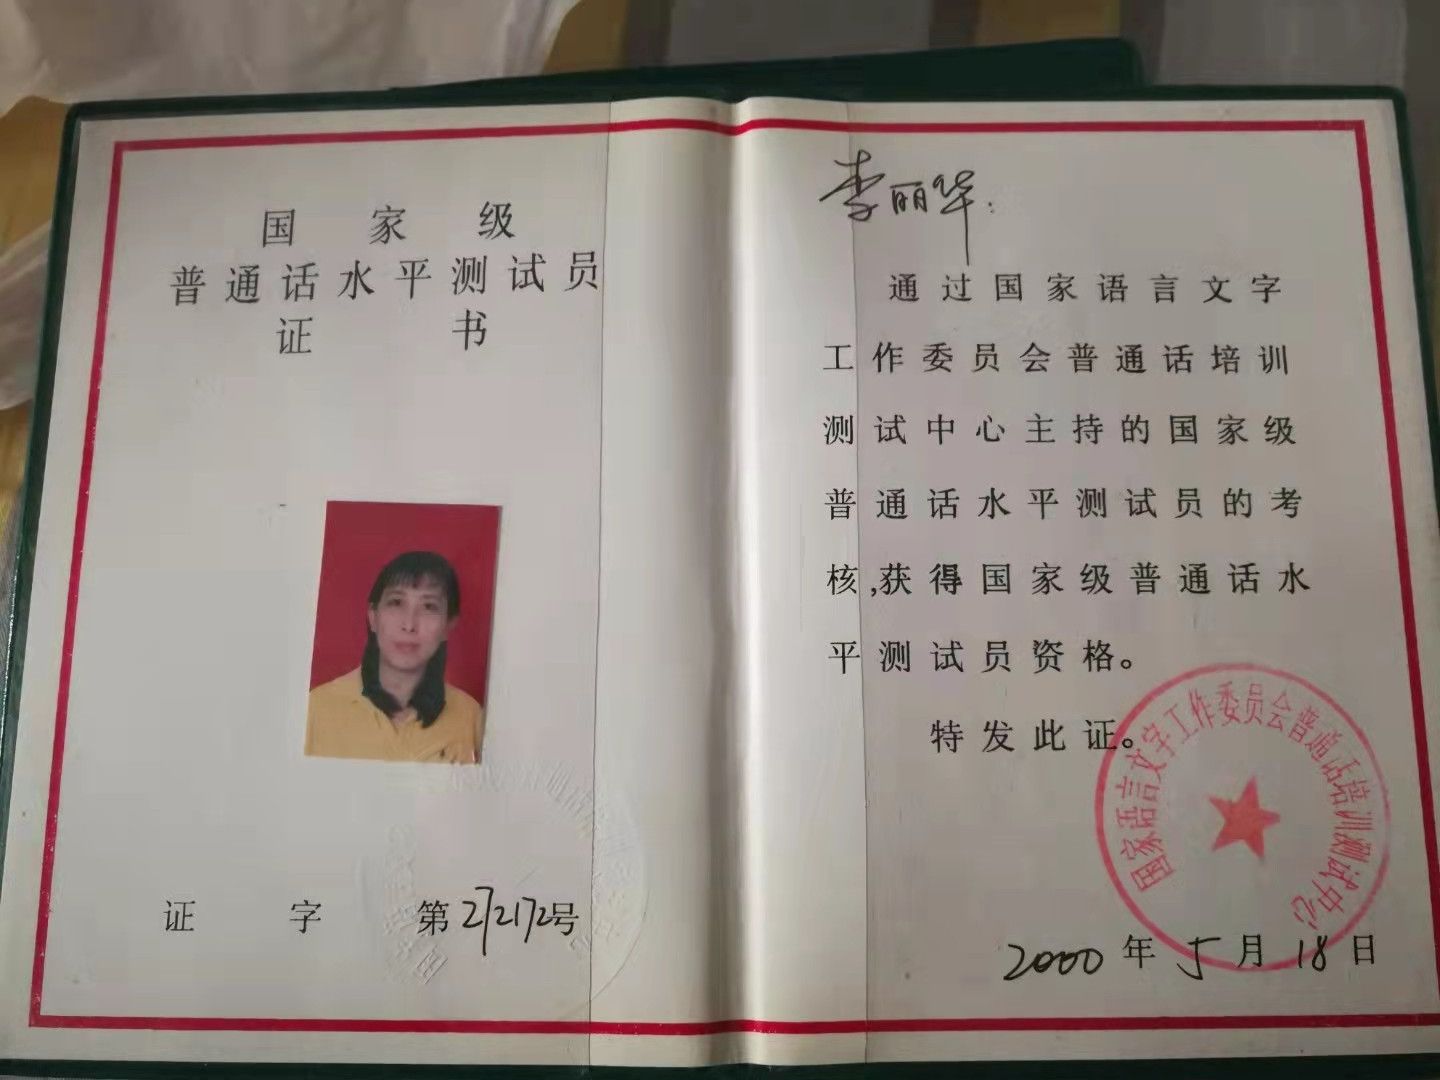 国家级
普通话水平测试员
证书
证字第272172号
李丽华:
通过国家语言文字
工作委员会普通话培训
测试中心主持的国家级
普通话水平测试员的考
核,获得国家级普通话水
平测试员资格。
特发此证。
国家语言文字工作委员会普通话培训测试中心
2000年5月18日